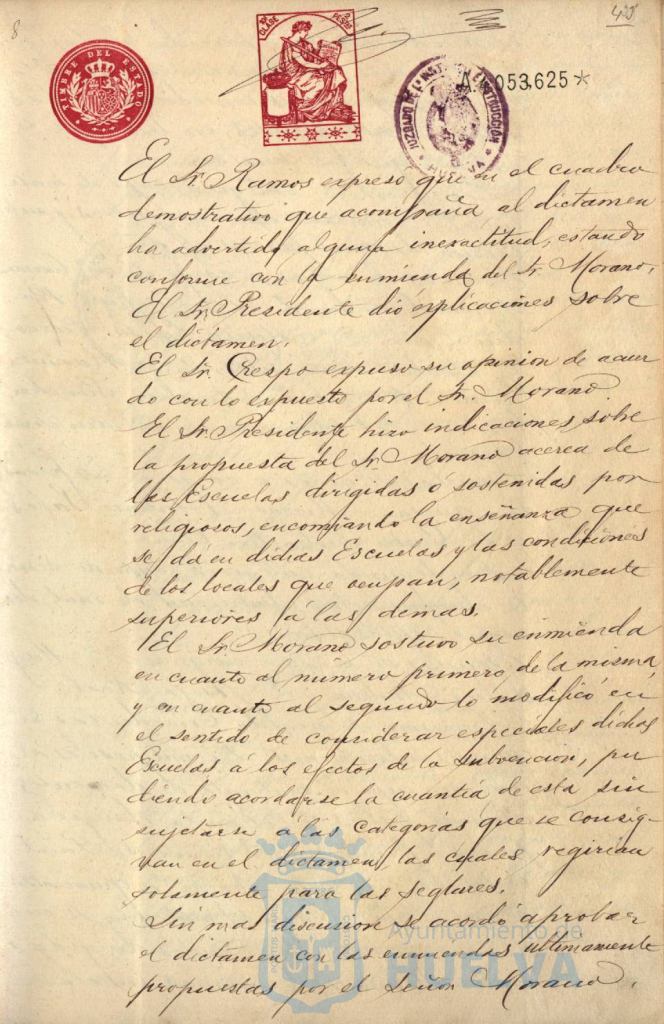 8
TIMBRE DEL ESTADO
10ª CLASE 2 PESETAS
JUZGADO DE 1ª INSTª E INSTRUCCIÓN
HUELVA
A. 053,625*
El Sr. Ramos expresó que en el cuadro
demostrativo que acompaña al dictamen
ha advertido alguna inexactitud, estando
conforme con la enmienda del Sr. Morano.
El Sr. Presidente dió explicaciones sobre
el dictamen.
El Sr. Crespo expuso su opinion de acuer
do con lo expuesto por el Sr. Morano.
El Sr. Presidente hizo indicaciones sobre
la propuesta del Sr. Morano acerca de
las Escuelas dirigidas ó sostenidas por
religiosos, encomiando la enseñanza que
se dá en dichas Escuelas y las condiciones
de los locales que ocupan, notablemente
superiores á las demas.
El Sr. Morano sostuvo su enmienda
en cuanto al número primero de la misma,
y en cuanto al segundo lo modificó en
el sentido de considerar especiales dichas
Escuelas á los efectos de la subvencion, pu
diendo acordarse la cuantía de esta sin
sujetarse á las categorias que se consig-
nan en el dictamen, las cuales regirian
solamente para las seglares.
Sin mas discusion se acordó aprobar
el dictamen con las enmiendas ultimamente
propuestas por el Señor Morano.
Ayuntamiento de
HUELVA